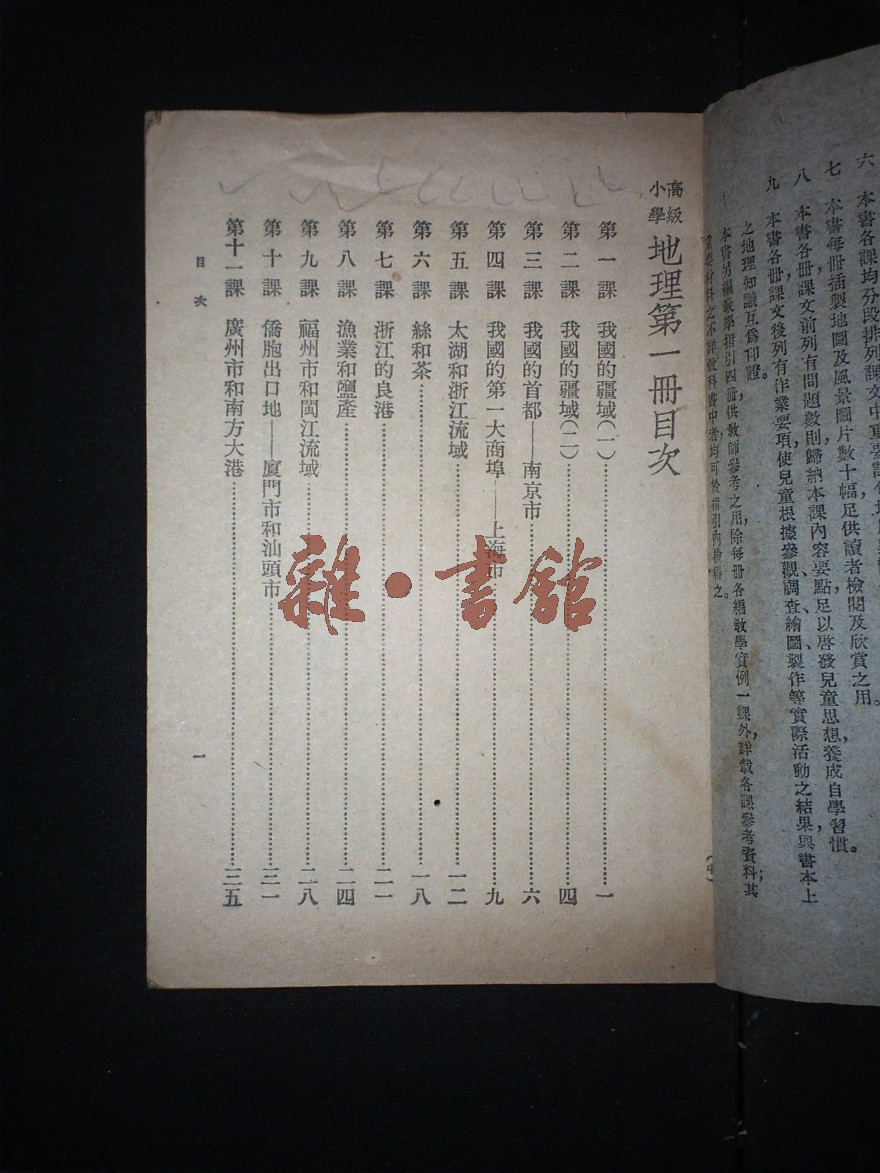 六 本書各課均分段排列課文中重要
七 本書每冊插製地圖及風景圖片數十幅，足供讀者檢閱及欣賞之用。
八 本書各冊課文前列有問題數則歸納本課內容要點足以啓發兒童思想，養成自學習慣。
九 本書各冊課文後列有作業要項，使兒童根據參觀、調查、繪圖、製作等實際活動之結果，與書本上
之地理知識互爲印證。
十 本書另編教學指引四冊，供教師參考之用，除每冊各編教學實例一課外，詳載各課參考資料；其
重要材料之不詳教科書中者均可於指引內檢得之。
高級
小學
地理第一冊目次
第一課 我國的疆域(一)……一
第二課 我國的疆域(二)……四
第三課 我國的首都——南京市……六
第四課 我國的第一大商埠——上海市……九
第五課 太湖和浙江流域……一二
第六課 絲和茶……一八
第七課 浙江的良港……二一
第八課 漁業和鹽產……二四
第九課 福州市和閩江流域……二八
第十課 僑胞出口地——廈門市和汕頭市……三一
第十一課 廣州市和南方大港……三五
目次
一
雜·書館